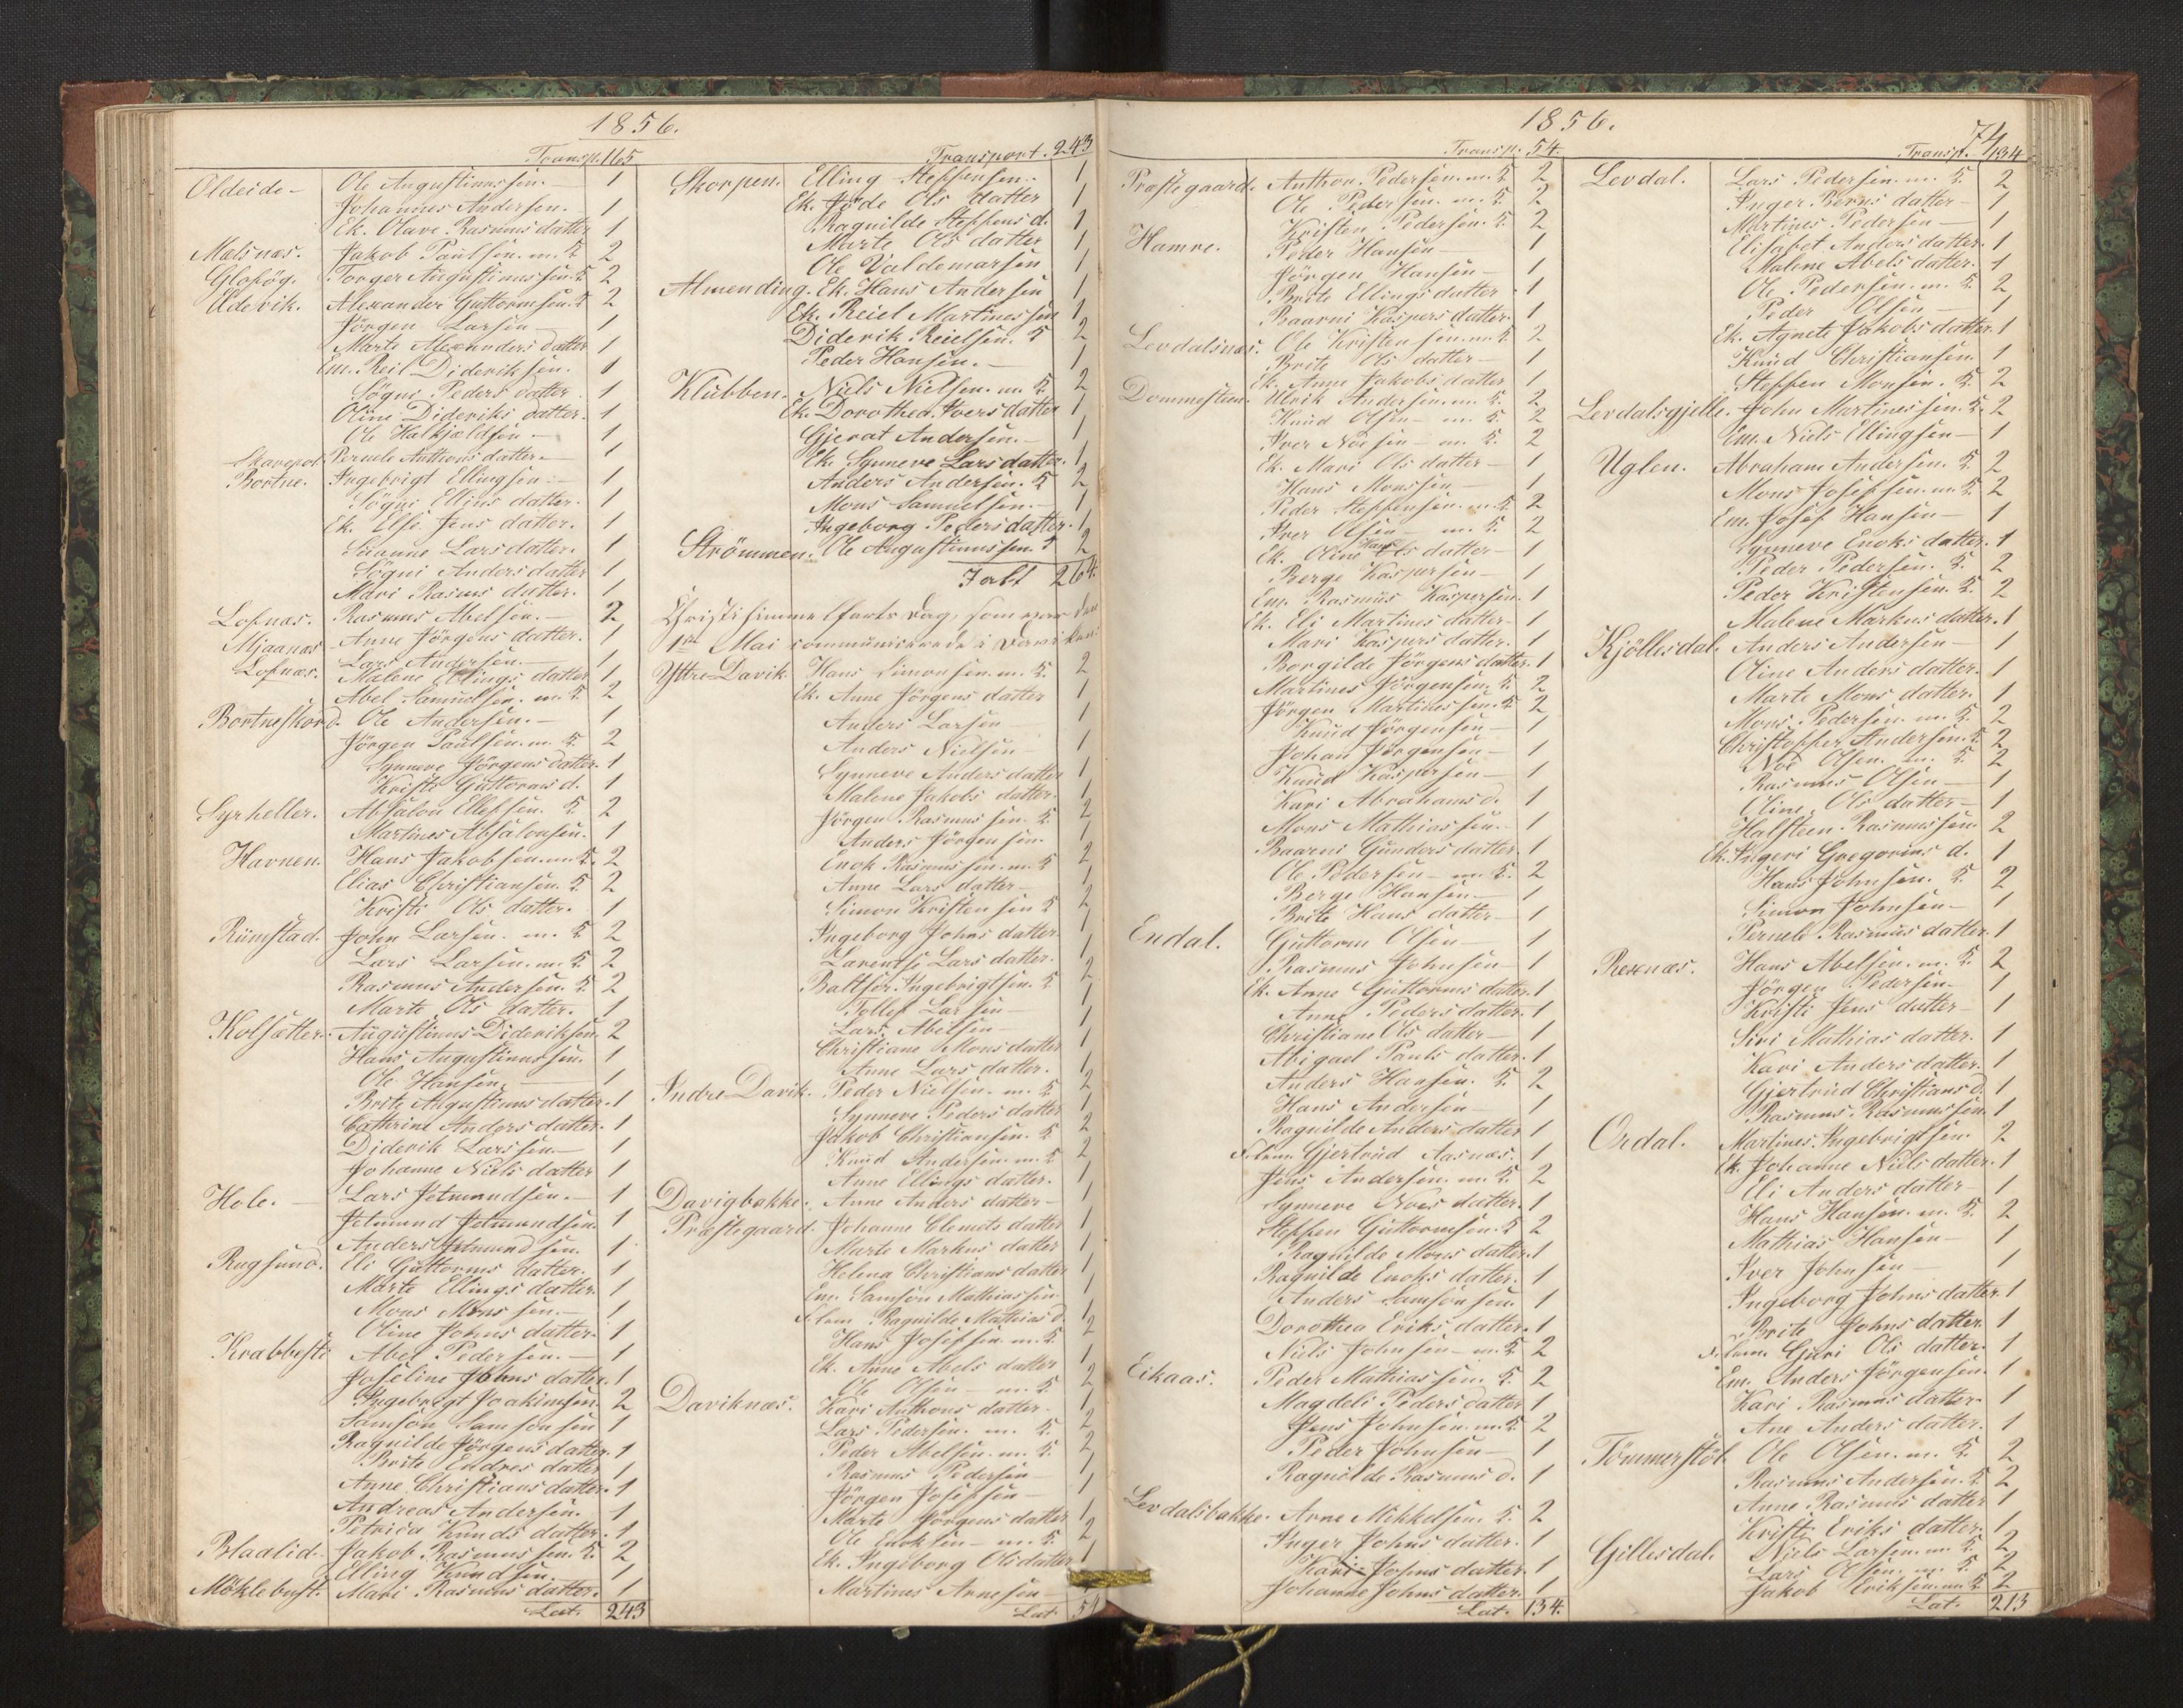 1856.
Transp. 165
Oldeide - Ole Augustinussen. - 1
Johannes Andersen. 1
Ek. Olave Rasmus datter 1
Mælsnæs. Jakob Paulsen. m. K. 2
Torger Augustinussen. K 2
Udevik. Alexander Guttormsen. K 2
Jörgen Larsen - 1
Marte Alexanders datter 1
Em. Reil Dideriksen. 1
Sögni Peders datter 1
Oline Dideriks datter. 1
Ole Halkjeldsen - 1
Pernele Anthons datter - 1
Bortne. Ingebrigt Ellingsen - 1
Sögni Elias datter. 1
Ek. Else Jens datter. 1
Susanne Lars datter. 1
Sögni Anders datter 1
Mari Rasmus datter. 1
Lofnæs. Rasmus Abelsen. - 2
Mjaanæs Anne Jörgens datter. 1
Lofnæs. Lars Andersen. - 1
Malene Ellings datter 1
Abel Samuelsen. m. K 2
Bortneskord. Ole Andersen. - 1
Jörgen Paulsen. m. K. 2
Synneve Jörgens datter. 1
Kristi Guttorms d. 1
Syrheller. Absalon Ellefsen. K. 2
Martines Absalonsen. 1
Havnen. Hans Jakobsen. m. K. 2
Elias Christiansen. K. 2
Kristi Ols datter. 1
Rimstad. John Larsen. m. K 2
Lars Larsen. m. K 2
Rasmus Andersen. K. 2
Marte Ols datter. 1
Kolsætter. Augustinus Dideriksen. 2
Hans Augustinussen. 1
Ole Hansen. 1
Brite Augustinus datter. 1
Cathrine Anders datter. 1
Diderik Larssen - 1
Johanne Niels datter 1
Hole. - Lars Jetmundsen. - 1
Jetmund Jetmundsen. 1
Anders Jetmundsen. 1
Rugsund. Eli Guttorms datter. 1
Marte Ellings datter. 1
Mons Monssen. - 1
Oline Johns datter. 1
Krabbesti Abel Pedersen. - 1
Joseline Johns datter. 1
Ingebrigt Joakimsen. 2
Samson Samsonsen 1
Ragnilde Jörgens datter. 1
Brite Endres datter 1
Anne Christians datter. 1
Andreas Andersen. 1
Petrica Knuds datter. 1
Blaalid. Jakob Rasmussen. K. 2
Elling Knudsen. 1
Möklebust. Mari Rasmus datter. 1
Lat. 243
Transport. 243
Skorpen. Elling Steffensen. 1
Ek. Jöde Ols datter 1
Ragnilde Steffens d. 1
Marte Ols datter 1
Ole Valdemarsen 1
Almending. Ek. Hans Andersen 1
Ek. Reiel Martinessen 1
Diderik Reielsen. K 2
Peder Hansen. - 1
Klubben. Niels Nielsen. m. K. 2
Ek. Dorothea Ivers datter 1
Gjerat Andersen. - 1
Ek. Synneve Lars datter. 1
Anders Andersen. K 2
Mons Samuelsen. - 1
Ingeborg Peders datter. 1
Strömmen. Ole Augustinussen. K 2
Ialt 264.
Christi himmelfarts dag, som var den
1ste Mai communicerede i Davik
Yttre Davik Hans Simonsen. m. K. 2
Ek. Anne Jörgens datter 1
Anders Larsen 1
Anders Nielsen - 1
Synneve Anders datter 1
Malene Jakobs datter. 1
Jörgen Rasmussen. K. 2
Anders Jörgensen 1
Enok Rasmussen. m. K 2
Anne Lars datter - 1
Simon Kristensen K 2
Ingeborg Johns datter 1
Larentse Lars datter. 1
Baltser Ingebrigtsen. K 2
Tollef Larsen - 1
Lars Abelsen - 1
Christiane Mons datter 1
Anne Lars datter. 1
Indre Davik. Peder Nielsen. m. K 2
Synneve Peders datter 1
Jakob Christiansen. K 2
Knud Andersen. m. K 2
Anne Ellings datter. 1
Davigbakke. Anne Anders datter - 1
Præstegaard. Johanne Clemets datter 1
Marte Markus datter 1
Helena Christians datter 1
Em. Samson Mathiassen 1
Ragnilde Mathias d. 1
Hans Josefsen. m. K. 2
Ek. Anne Abels datter 1
Ole Olsen - m. K. 2
Daviknæs. Kari Anthons datter. 1
Lars Pedersen. m. K. 2
Peder Abelsen. m. K. 2
Rasmus Pedersen - 1
Jörgen Josefsen - 1
Marte Jörgens datter 1
Ole Enoksen - m. K. 2
Ek. Ingeborg Ols datter 1
Martines Arnesen 1
Lat. 54
1856.
Transp. 54.
Præstegaard. Anthon Pedersen. m. K. 2
Ole Pedersen. m. K. 2
Kristen Pedersen. K. 2
Hamre. Peder Hansen - 1
Jörgen Hansen - 1
Brite Ellings datter - 1
Baarni Kaspers datter. 1
Levdalsnæs. Ole Kristensen. m. K. 2
Brite Ols datter - 1
Ek. Anne Jakobs datter 1
Dommesten. Ulrik Andersen. m. K. 2
Knud Olsen - m. K. 2
Iver Noesen - m. K. 2
Ek. Mari Ols datter - 1
Hans Monssen - 1
Peder Steffensen. m. K. 2
Iver Olsen - m. K. 2
Ek. Oline Hans Ols datter - 1
Berge Kaspersen - 1
Em. Rasmus Kaspersen. 1
Ek. Eli Martines datter - 1
Mari Kaspers datter. 1
Borgilde Jörgens datter. 1
Martines Jörgensen. K 2
Jörgen Martinessen. K 2
Knud Jörgensen - 1
Johan Jörgensen - 1
Knud Kaspersen - 1
Kari Abrahams d. 1
Mons Mathiassen. - 1
Baarni Gunders datter. 1
Ole Pedersen - m. K. 2
Berge Hansen - 1
Brite Hans datter - 1
Endal. Guttorm Olsen - 1
Rasmus Johnsen - 1
Ek. Anne Guttorms datter. 1
Anne Peders datter. 1
Christiane Ols datter - 1
Abigael Pauls datter. 1
Anders Hansen. K. 2
Hans Andersen - 1
Ragnilde Anders datter 1
Gjertrud Aasnæs. 1
Jens Andersen. m. K. 2
Synneve Noes datter. 1
Steffen Guttormsen. K 2
Ragnilde Mons datter. 1
Ragnilde Enoks datter. 1
Anders Samsonsen. 1
Dorothea Eriks datter. 1
Niels Johnsen - m. K. 2
Eikaas. Peder Mathiassen. K. 2
Magdeli Peders datter 1
Jens Johnsen. m. K. 2
Peder Johnsen - 1
Ragnilde Rasmus d. 1
Levdalsbakke. Arne Mikkelsen. K. 2
Inger Johns datter. 1
Kari Johns datter. 1
Johanne Johns datter. 1
Lat. 134.
71
Transp. 134
Levdal. Lars Pedersen. m. K. 2
Inger Berns datter - 1
Martines Pedersen - 1
Elisabet Anders datter. 1
Malene Abels datter. 1
Ole Pedersen. m. K. 2
Peder Olsen - 1
Ek. Agnete Jakobs datter. 1
Knud Christiansen. 1
Steffen Monsen. K. 2
Levdalsgjelle. John Martinessen. K. 2
Em. Niels Ellingsen - 1
Uglen. Abraham Andersen. K. 2
Mons Josefsen. m. K. 2
Em. Josef Hansen - 1
Synneve Enoks datter. 1
Peder Pedersen. K. 2
Peder Kristensen. K. 2
Malene Markus datter. 1
Kjöllesdal. Anders Andersen - 1
Oline Anders datter. 1
Marte Mons datter. 1
Mons Pedersen. m. K. 2
Christopher Andersen. K. 2
Noe Olsen. m. K. 2
Rasmus Olsen - 1
Oline Ols datter - 1
Halsteen Rasmussen. 2
Ek. Ingeri Gregorius d. 1
Hans Johnsen. K. 2
Simon Johnsen - 1
Pernele Rasmus datter. 1
Rexnæs. Hans Abelsen. m. K. 2
Jörgen Pedersen - 1
Kristi Jens datter - 1
Siri Mathias datter. 1
Kari Anders datter. 1
Gjertrud Christians d. 1
Rasmus Rasmussen. 1
Ordal. Martines Ingebrigtsen. 2
Ek. Johanne Niels datter. 1
Eli Anders datter - 1
Hans Hansen. m. K. 2
Mathias Hansen - 1
Iver Johnsen - 1
Ingeborg Johns datter. 1
Brite Johns datter. 1
Guri Ols datter. 1
Em. Anders Jörgensen. 1
Kari Rasmus datter - 1
Ane Anders datter. 1
Tömmerstöl. Ole Olsen. m. K. 2
Rasmus Andersen. K. 2
Anne Rasmus datter 1
Kristi Eriks datter. 1
Gillesdal. Niels Larsen. m. K. 2
Lars Olsen. m. K. 2
Jakob Eriksen. m. K. 2
Lat. 213